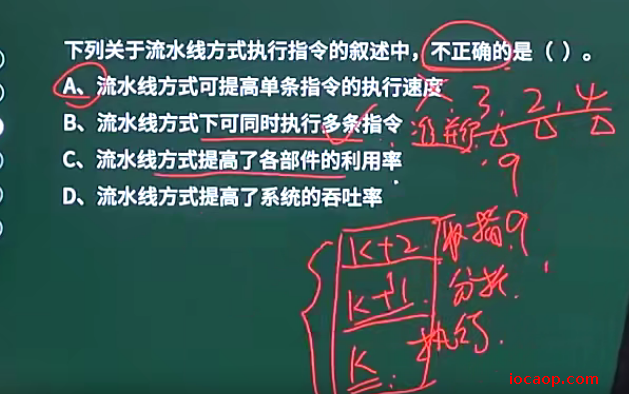 下列关于流水线方式执行指令的叙述中，不正确的是（ ）。
A、流水线方式可提高单条指令的执行速度
B、流水线方式下可同时执行多条指令
3, 2, 4
准并行
C、流水线方式提高了各部件的利用率
9
D、流水线方式提高了系统的吞吐率
K+2 取指 9
K+1 分析
K 执行
iocaop.com